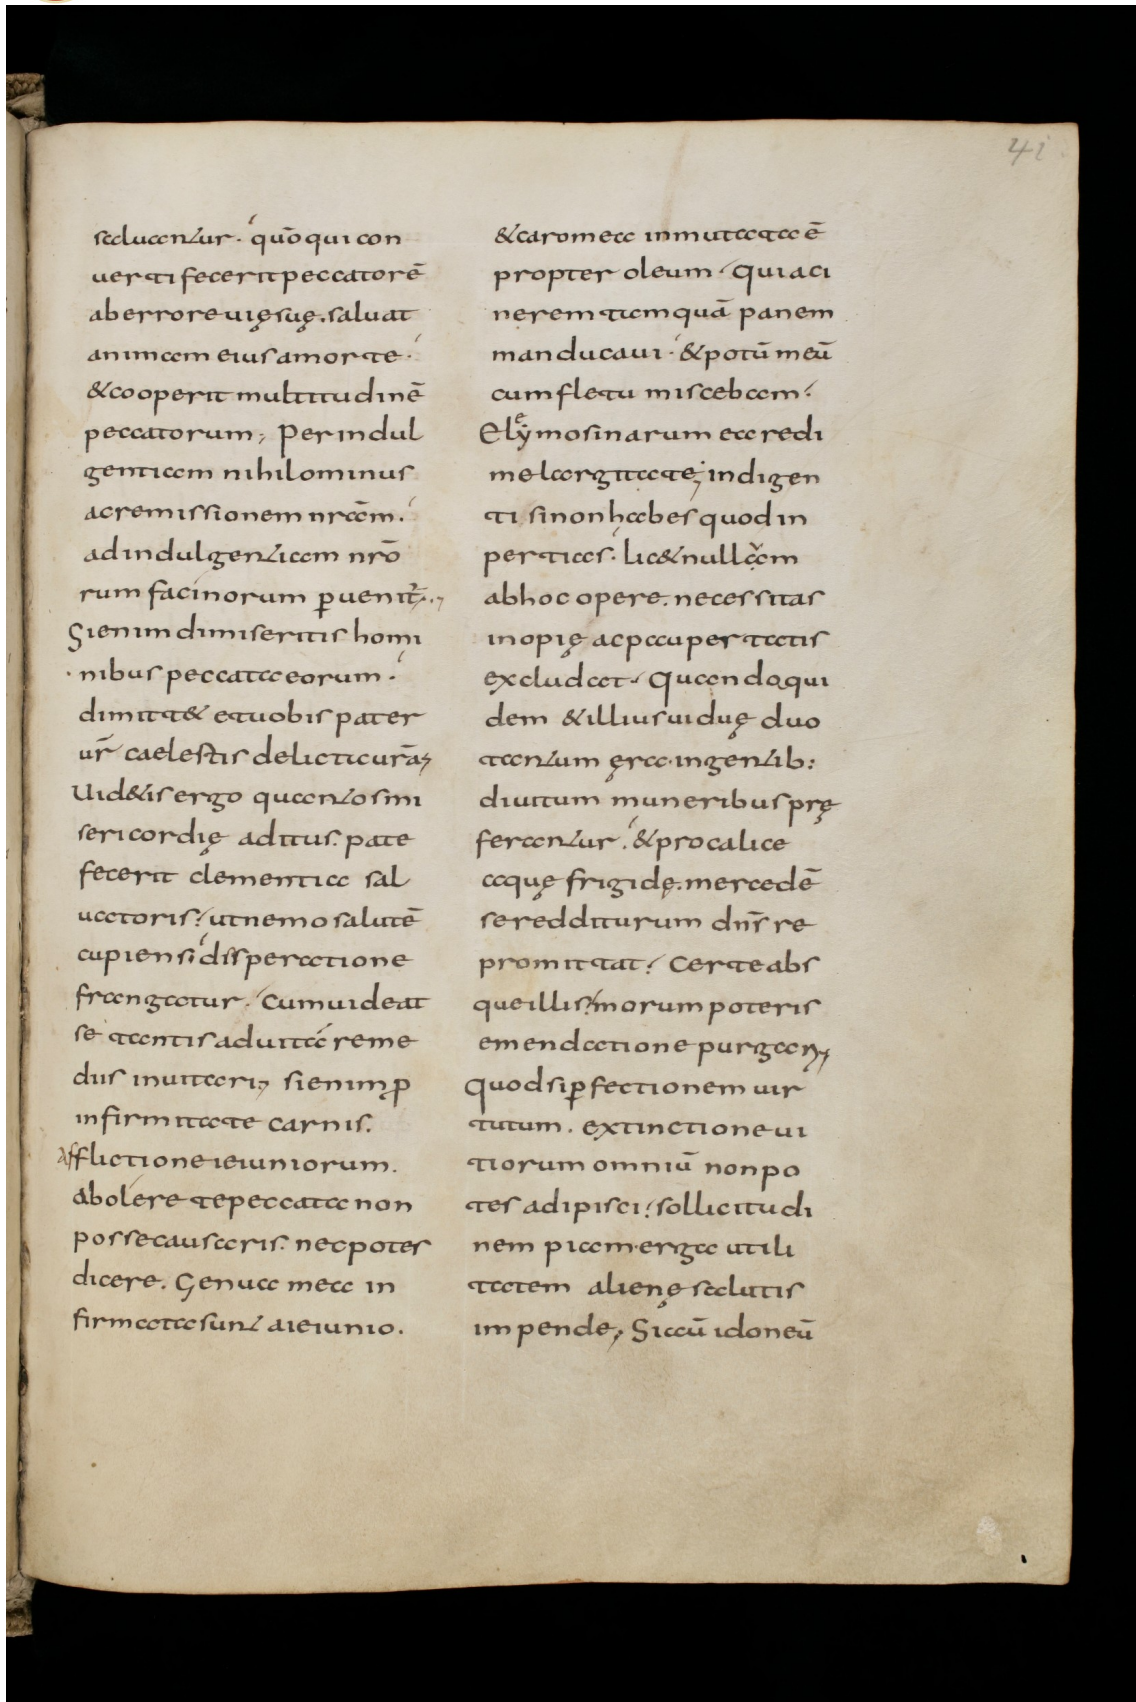 41
saluantur. quō qui con
uerti fecerit peccatorē
ab errore uię suę. saluat
animam eius a morte.
& cooperit multitudinē
peccatorum; Per indul
gentiam nihilominus
ac remissionem nrām.
ad indulgentiam nrō
rum facinorum ꝑuenit̄.,
Si enim dimiseritis homi
nibus peccata eorum.
dimitt& et uobis pater
ur̄ caelestis delicta urā;
Uid&is ergo quantos mi
sericordię aditus. pate
fecerit clementia sal
uatoris? ut nemo salutē
cupiens disperatione
frangatur. Cum uideat
se tantis ad uitā reme
diis inuitari; Si enim ꝓ
infirmitate carnis.
Afflictione ieiuniorum.
abolere te peccata non
posse causaris. nec potes
dicere. Genua mea in
firmata sunt a ieiunio.
& caro mea inmutata ē
propter oleum. Quia ci
nerem tamquā panem
manducaui. & potū meū
cum fletu miscebam.
Elymosinarum ea redi
me largitate; indigen
ti si non habes quod in
pertias. lic& nullam
ab hoc opere. necessitas
inopię ac paupertatis
excludat. Quando qui
dem & illius uiduę duo
tantum ęra. ingentib:
diuitum muneribus prę
ferantur. & pro calice
aquę frigidę. mercedē
se redditurum dns̄ re
promittat. Certe abs
que illis. morum poteris
emendatione purgari;
Quod si ꝑfectionem uir
tutum. extinctione ui
tiorum omniū non po
tes adipisci. sollicitudi
nem piam. erga utili
tatem alienę salutis
impende; Si ad idoneū